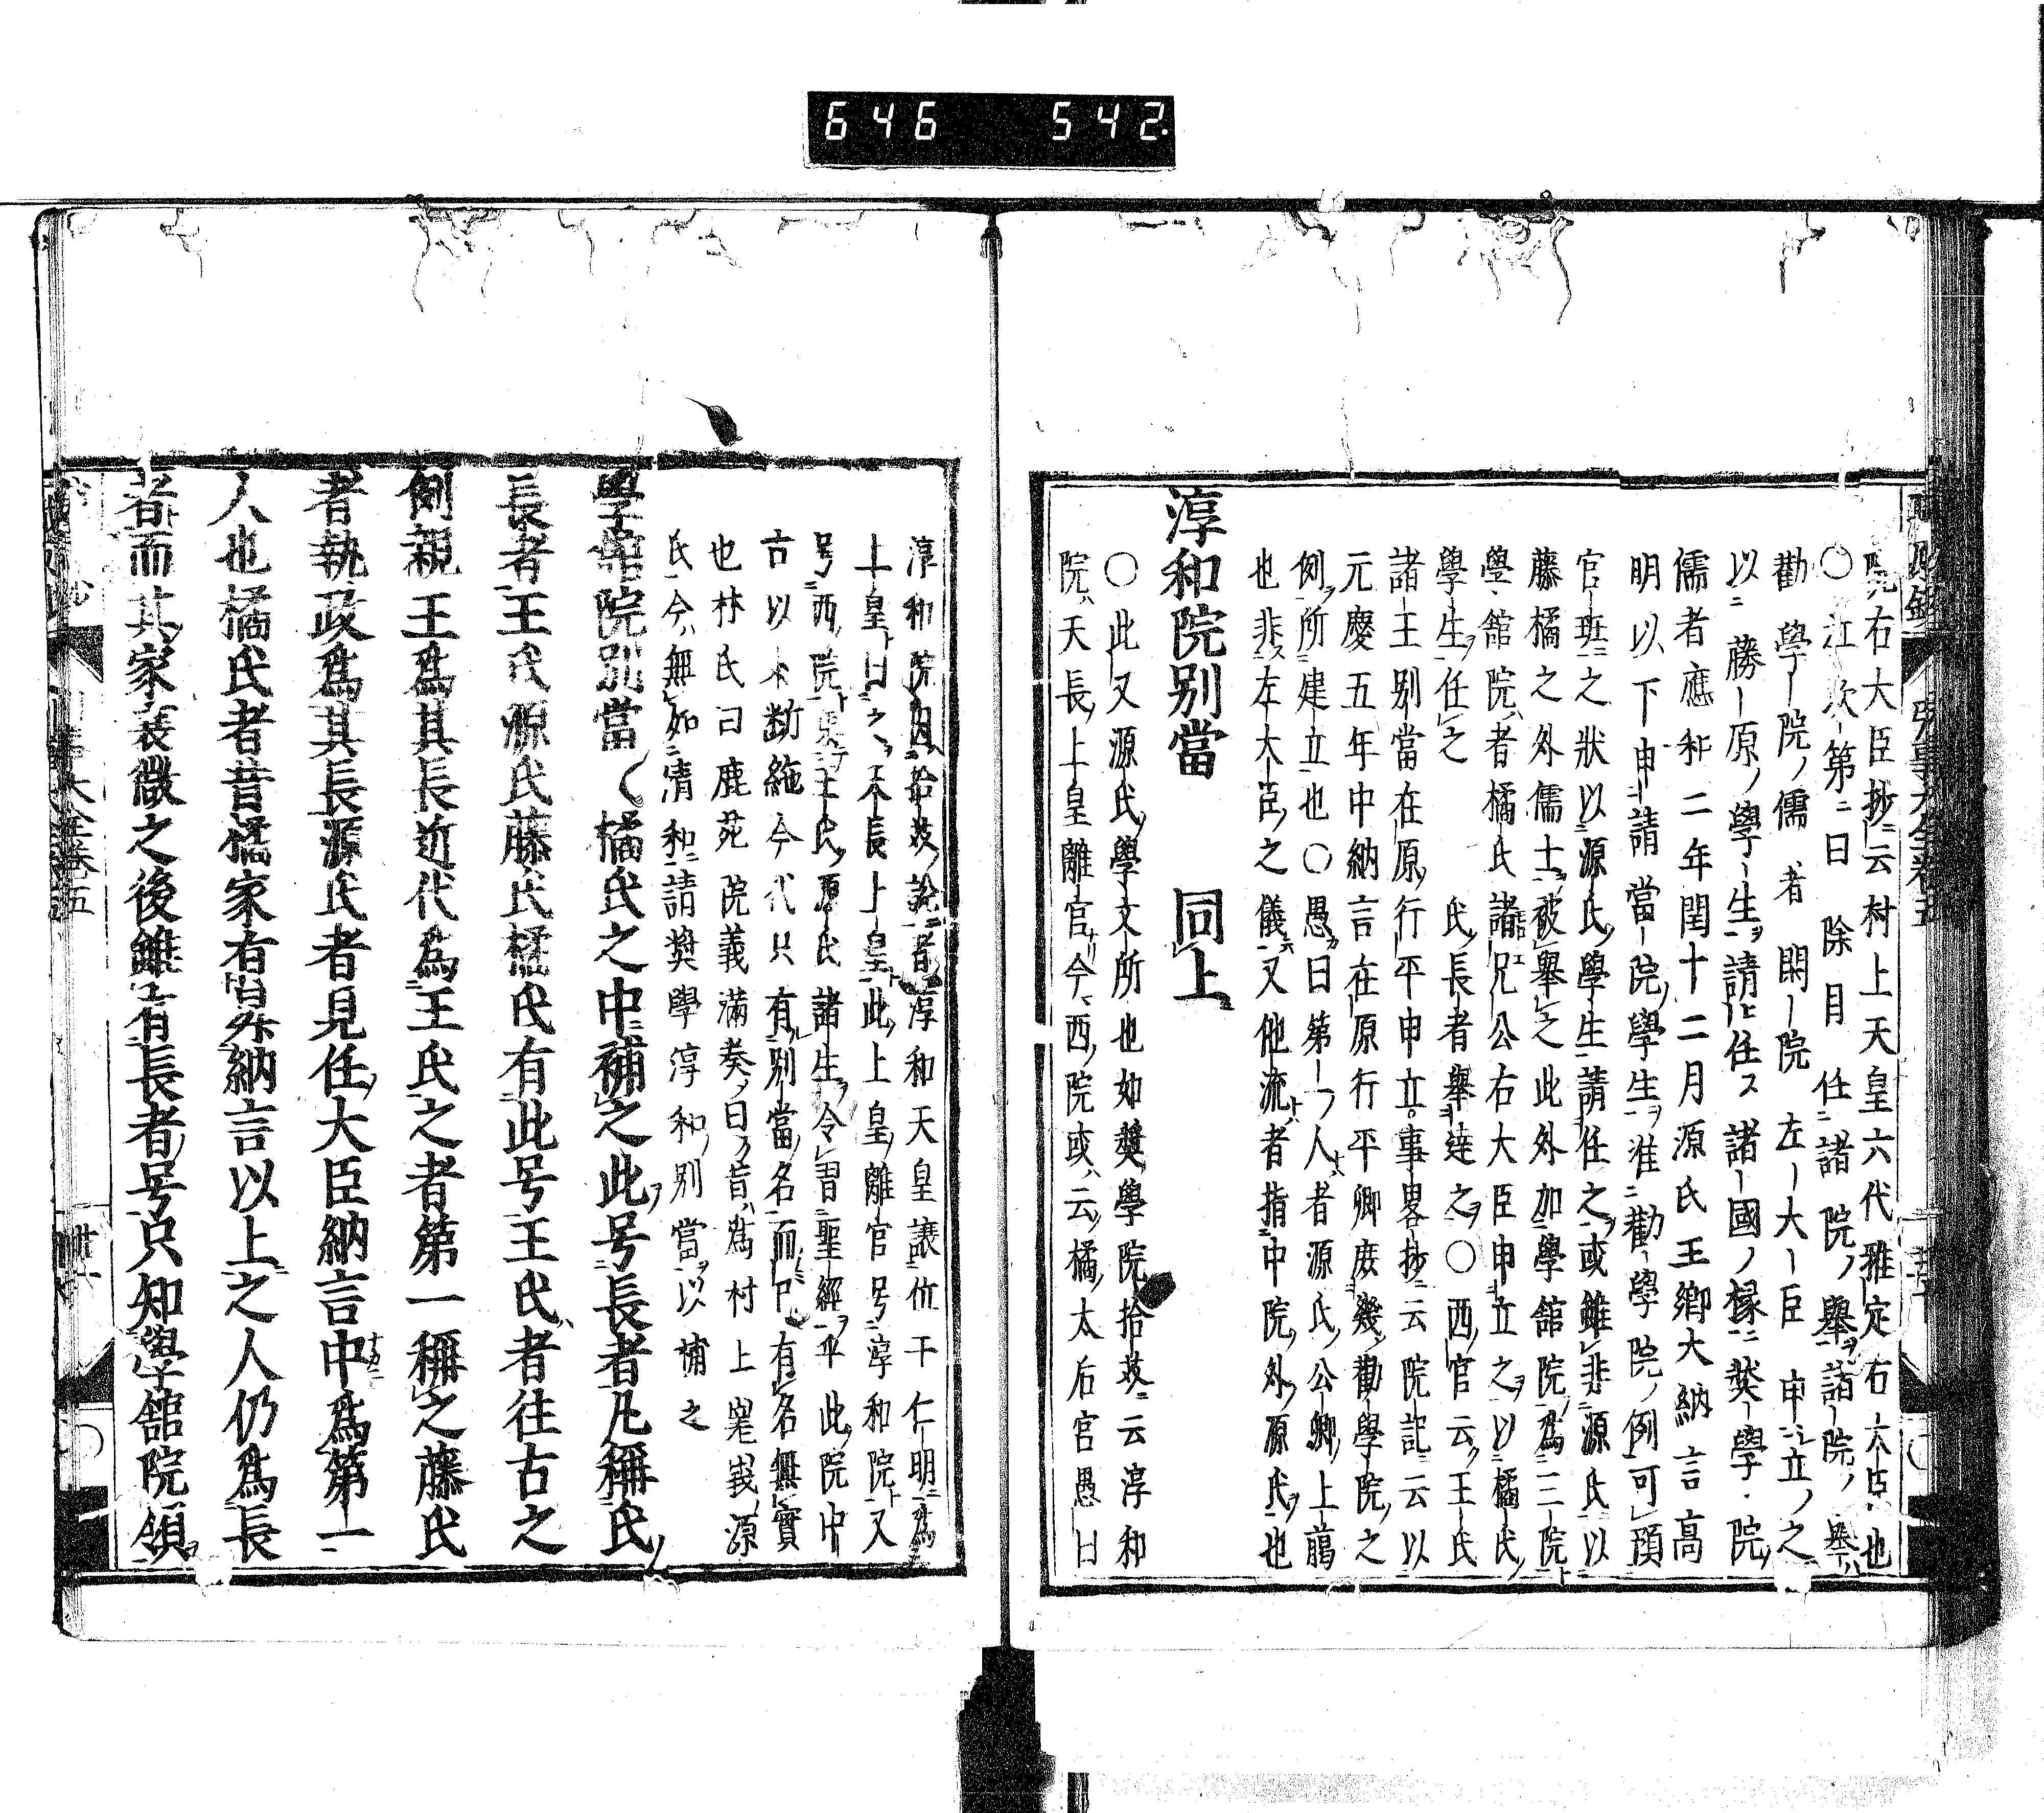 646 542
院右大臣抄云村上天皇六代雅定右大臣也
〇江次第ニ曰除目任諸院ノ擧諸院ノ
勸學院ノ儒者閑院左大臣申立ノ之
以ニ藤原ノ學生ヲ請ヒ任ス諸國ノ掾ニ奬學院
儒者應和二年閏十二月源氏王卿大納言高
明以下申請當院學生ヲ准ニ勸學院ノ例可預
官班之狀以源氏學生請任之或雖非源氏以
藤橘之外儒士被擧之此外加學舘院爲三院
學舘院者橘氏諸兄公右大臣申立之以橘氏
學生任之 氏長者擧達之〇西官云王氏
諸王別當在原行平申立事畧抄云院記云以
元慶五年中納言在原行平卿庻幾勸學院之
例所建立也〇愚曰第一ノ人者源氏公卿上﨟
也非左大臣之儀又他流者指中院外源氏也
淳和院別當 同上
〇此又源氏學文所也如奬學院拾芥云淳和
院天長上皇離官今西院或云橘太后宮愚曰
淳和院内拾芥說者淳和天皇讓位于仁明爲
上皇曰之天長上皇此上皇離官号淳和院又
号西院王氏源氏諸生令習聖經平此院中
古以來斷絶今代只有別當名而已有名無實
也林氏曰鹿苑院義滿奏曰昔爲村上嵯峩源
氏今無如淸和請奬學淳和別當以補之
學舘院別當〱橘氏之中補之此号長者凡稱氏
長者王氏源氏藤氏橘氏有此号王氏者往古之
例親王爲其長近代爲王氏之者第一稱之藤氏
者執政爲其長源氏者見任大臣納言中爲第一
人也橘氏者昔橘家有是外納言以上之人仍爲長
者而其家衰微之後雖有長者号只知學舘院領